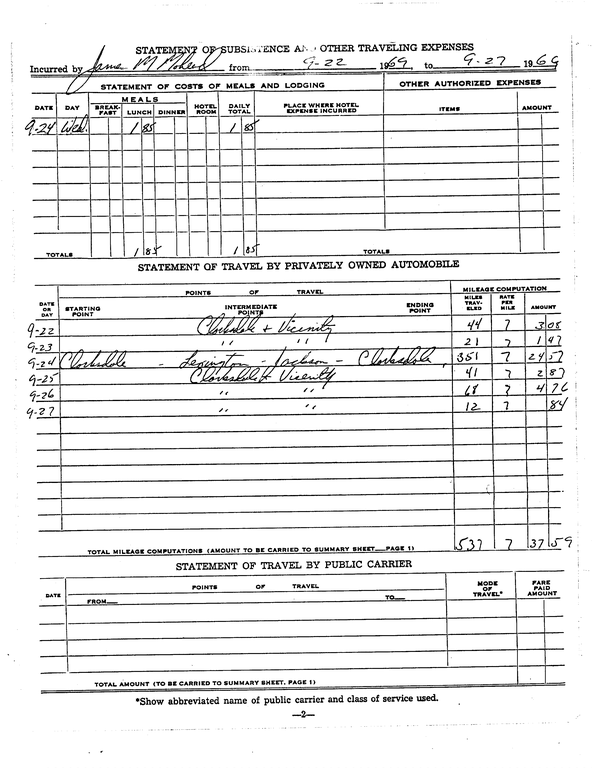 STATEMENT OF SUBSISTENCE AND OTHER TRAVELING EXPENSES
Incurred by James M Mohead from 9-22 1969, to 9-27 1969
STATEMENT OF COSTS OF MEALS AND LODGING OTHER AUTHORIZED EXPENSES
DATE DAY MEALS BREAK-FAST LUNCH DINNER HOTEL ROOM DAILY TOTAL PLACE WHERE HOTEL EXPENSE INCURRED ITEMS AMOUNT
9-24 Wed. 1 85 1 85
TOTALS 1 85 1 85 TOTALS
STATEMENT OF TRAVEL BY PRIVATELY OWNED AUTOMOBILE
POINTS OF TRAVEL MILEAGE COMPUTATION
DATE OR DAY STARTING POINT INTERMEDIATE POINTS ENDING POINT MILES TRAV-ELED RATE PER MILE AMOUNT
9-22 Clarksdale + Vicinity 44 7 3 08
9-23 " " 21 7 1 47
9-24 Clarksdale - Lexington - Jackson - Clarksdale, 351 7 24 57
9-25 Clarksdale + Vicinity 41 7 2 87
9-26 " " 68 7 4 76
9-27 " " 12 7 84
TOTAL MILEAGE COMPUTATIONS (AMOUNT TO BE CARRIED TO SUMMARY SHEET—PAGE 1) 537 7 37 59
STATEMENT OF TRAVEL BY PUBLIC CARRIER
DATE POINTS OF TRAVEL MODE OF TRAVEL* FARE PAID AMOUNT
FROM— TO—
TOTAL AMOUNT (TO BE CARRIED TO SUMMARY SHEET, PAGE 1)
*Show abbreviated name of public carrier and class of service used.
—2—